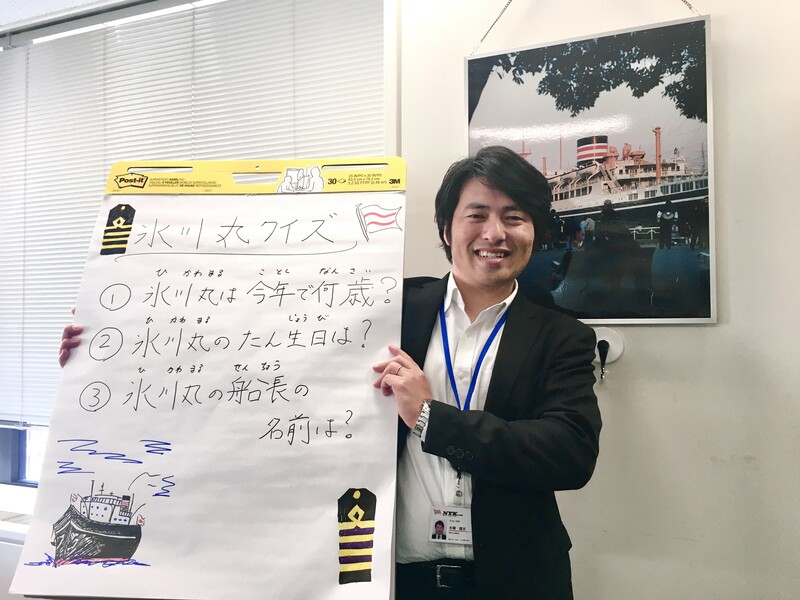 Post-it
30
3M
氷川丸クイズ
① 氷川丸は今年で何歳?
ひ かわ まる ことし なん さい
② 氷川丸のたん生日は?
ひ かわ まる じょうび
③ 氷川丸の船長の
ひ かわ まる せんちょう
名前は?
NYK